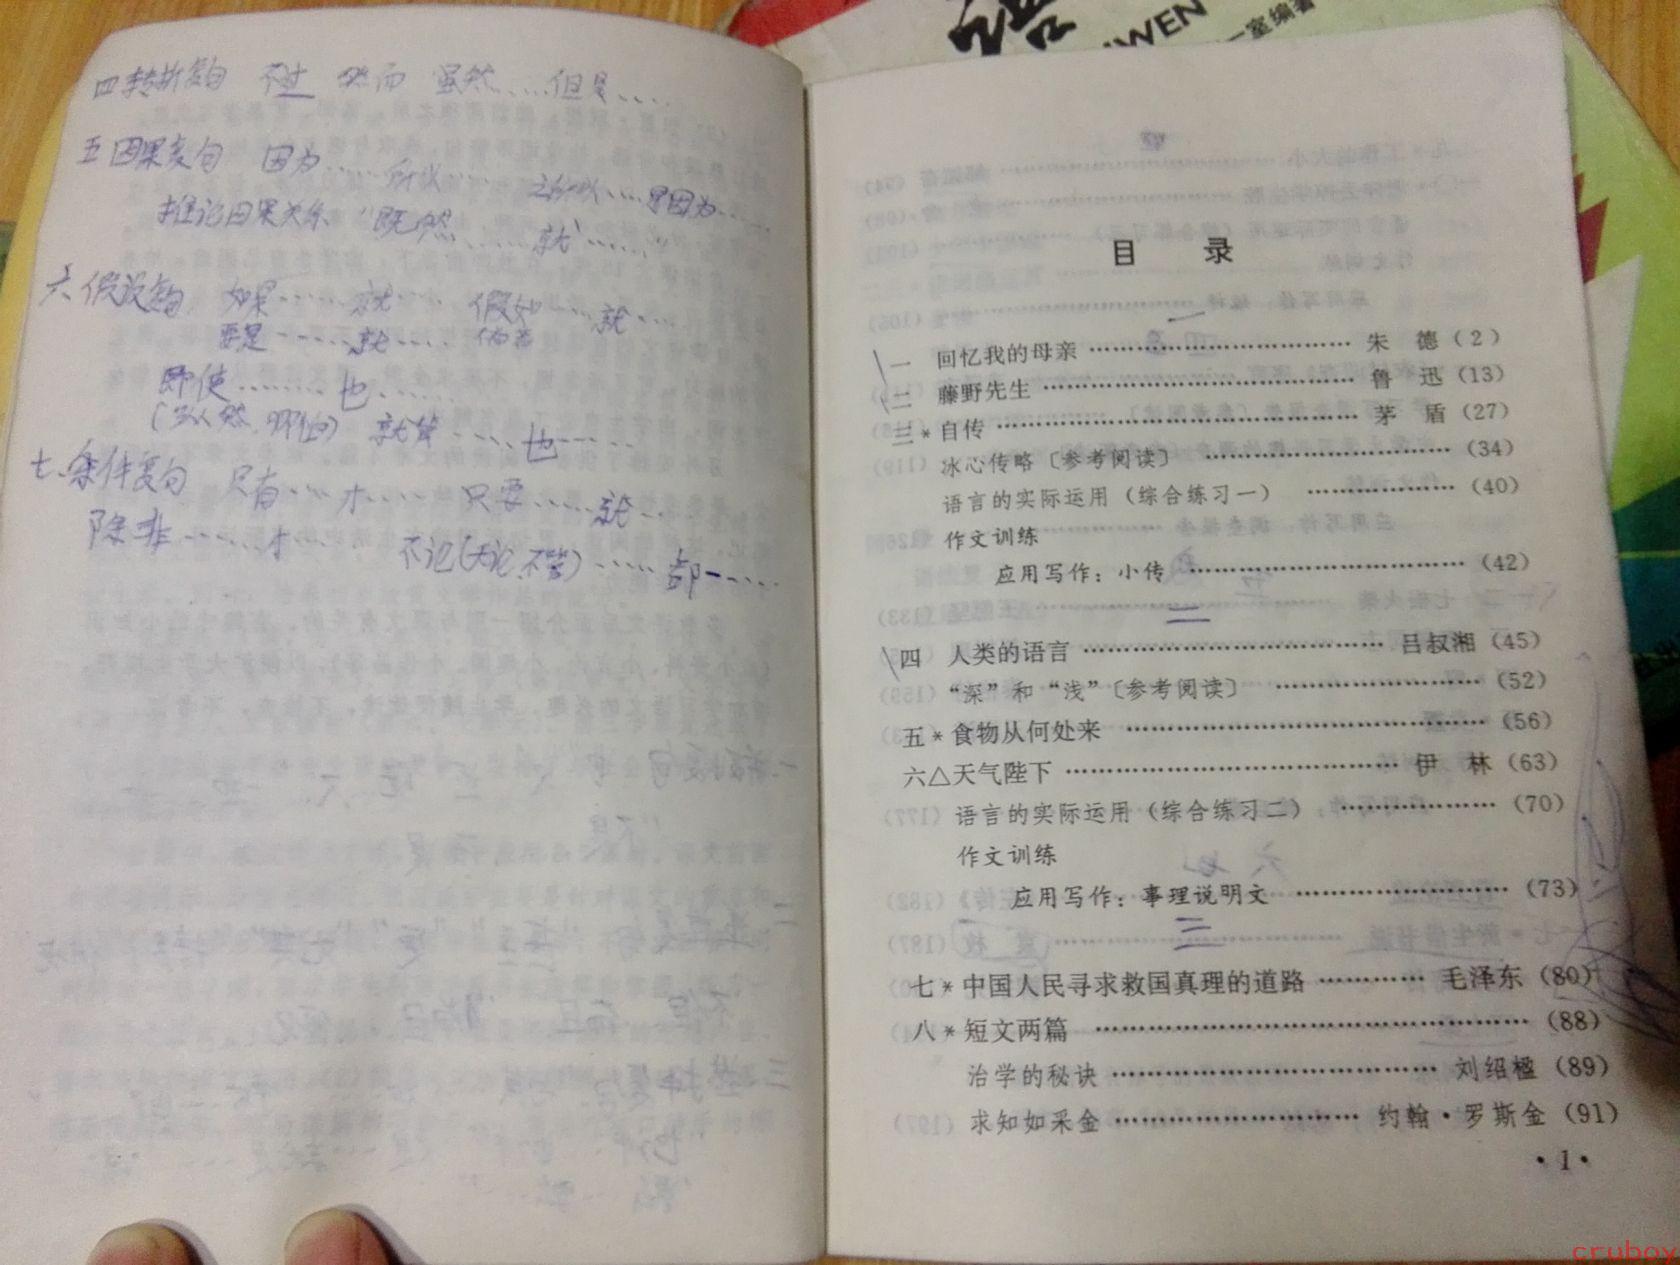 四 转折复句 不过 然而 虽然……但是……
五 因果复句 因为……所以…… 之所以……是因为……
推论因果关系 “既然……就……”
六、假设复句 如果……就…… 假如……就……
要是……就…… 倘若
即使……也……
(纵然、哪怕) 就算……也……
七、条件复句 只有……才…… 只要……就……
除非……才…… 不论(无论、不管)……都……
语
WEN
一室编著
目 录
一
一 回忆我的母亲 …… 朱 德 (2)
二 藤野先生 …… 鲁 迅 (13)
三*自传 …… 茅 盾 (27)
冰心传略〔参考阅读〕 …… (34)
语言的实际运用(综合练习一) …… (40)
作文训练
应用写作:小传 …… (42)
二
四 人类的语言 …… 吕叔湘 (45)
“深”和“浅”〔参考阅读〕 …… (52)
五*食物从何处来 …… (56)
六△天气陛下 …… 伊 林 (63)
语言的实际运用(综合练习二) …… (70)
作文训练
应用写作:事理说明文 …… (73)
三
七*中国人民寻求救国真理的道路 …… 毛泽东 (80)
八*短文两篇 …… (88)
治学的秘诀 …… 刘绍楹 (89)
求知如采金 …… 约翰·罗斯金 (91)
·1·
cruboy